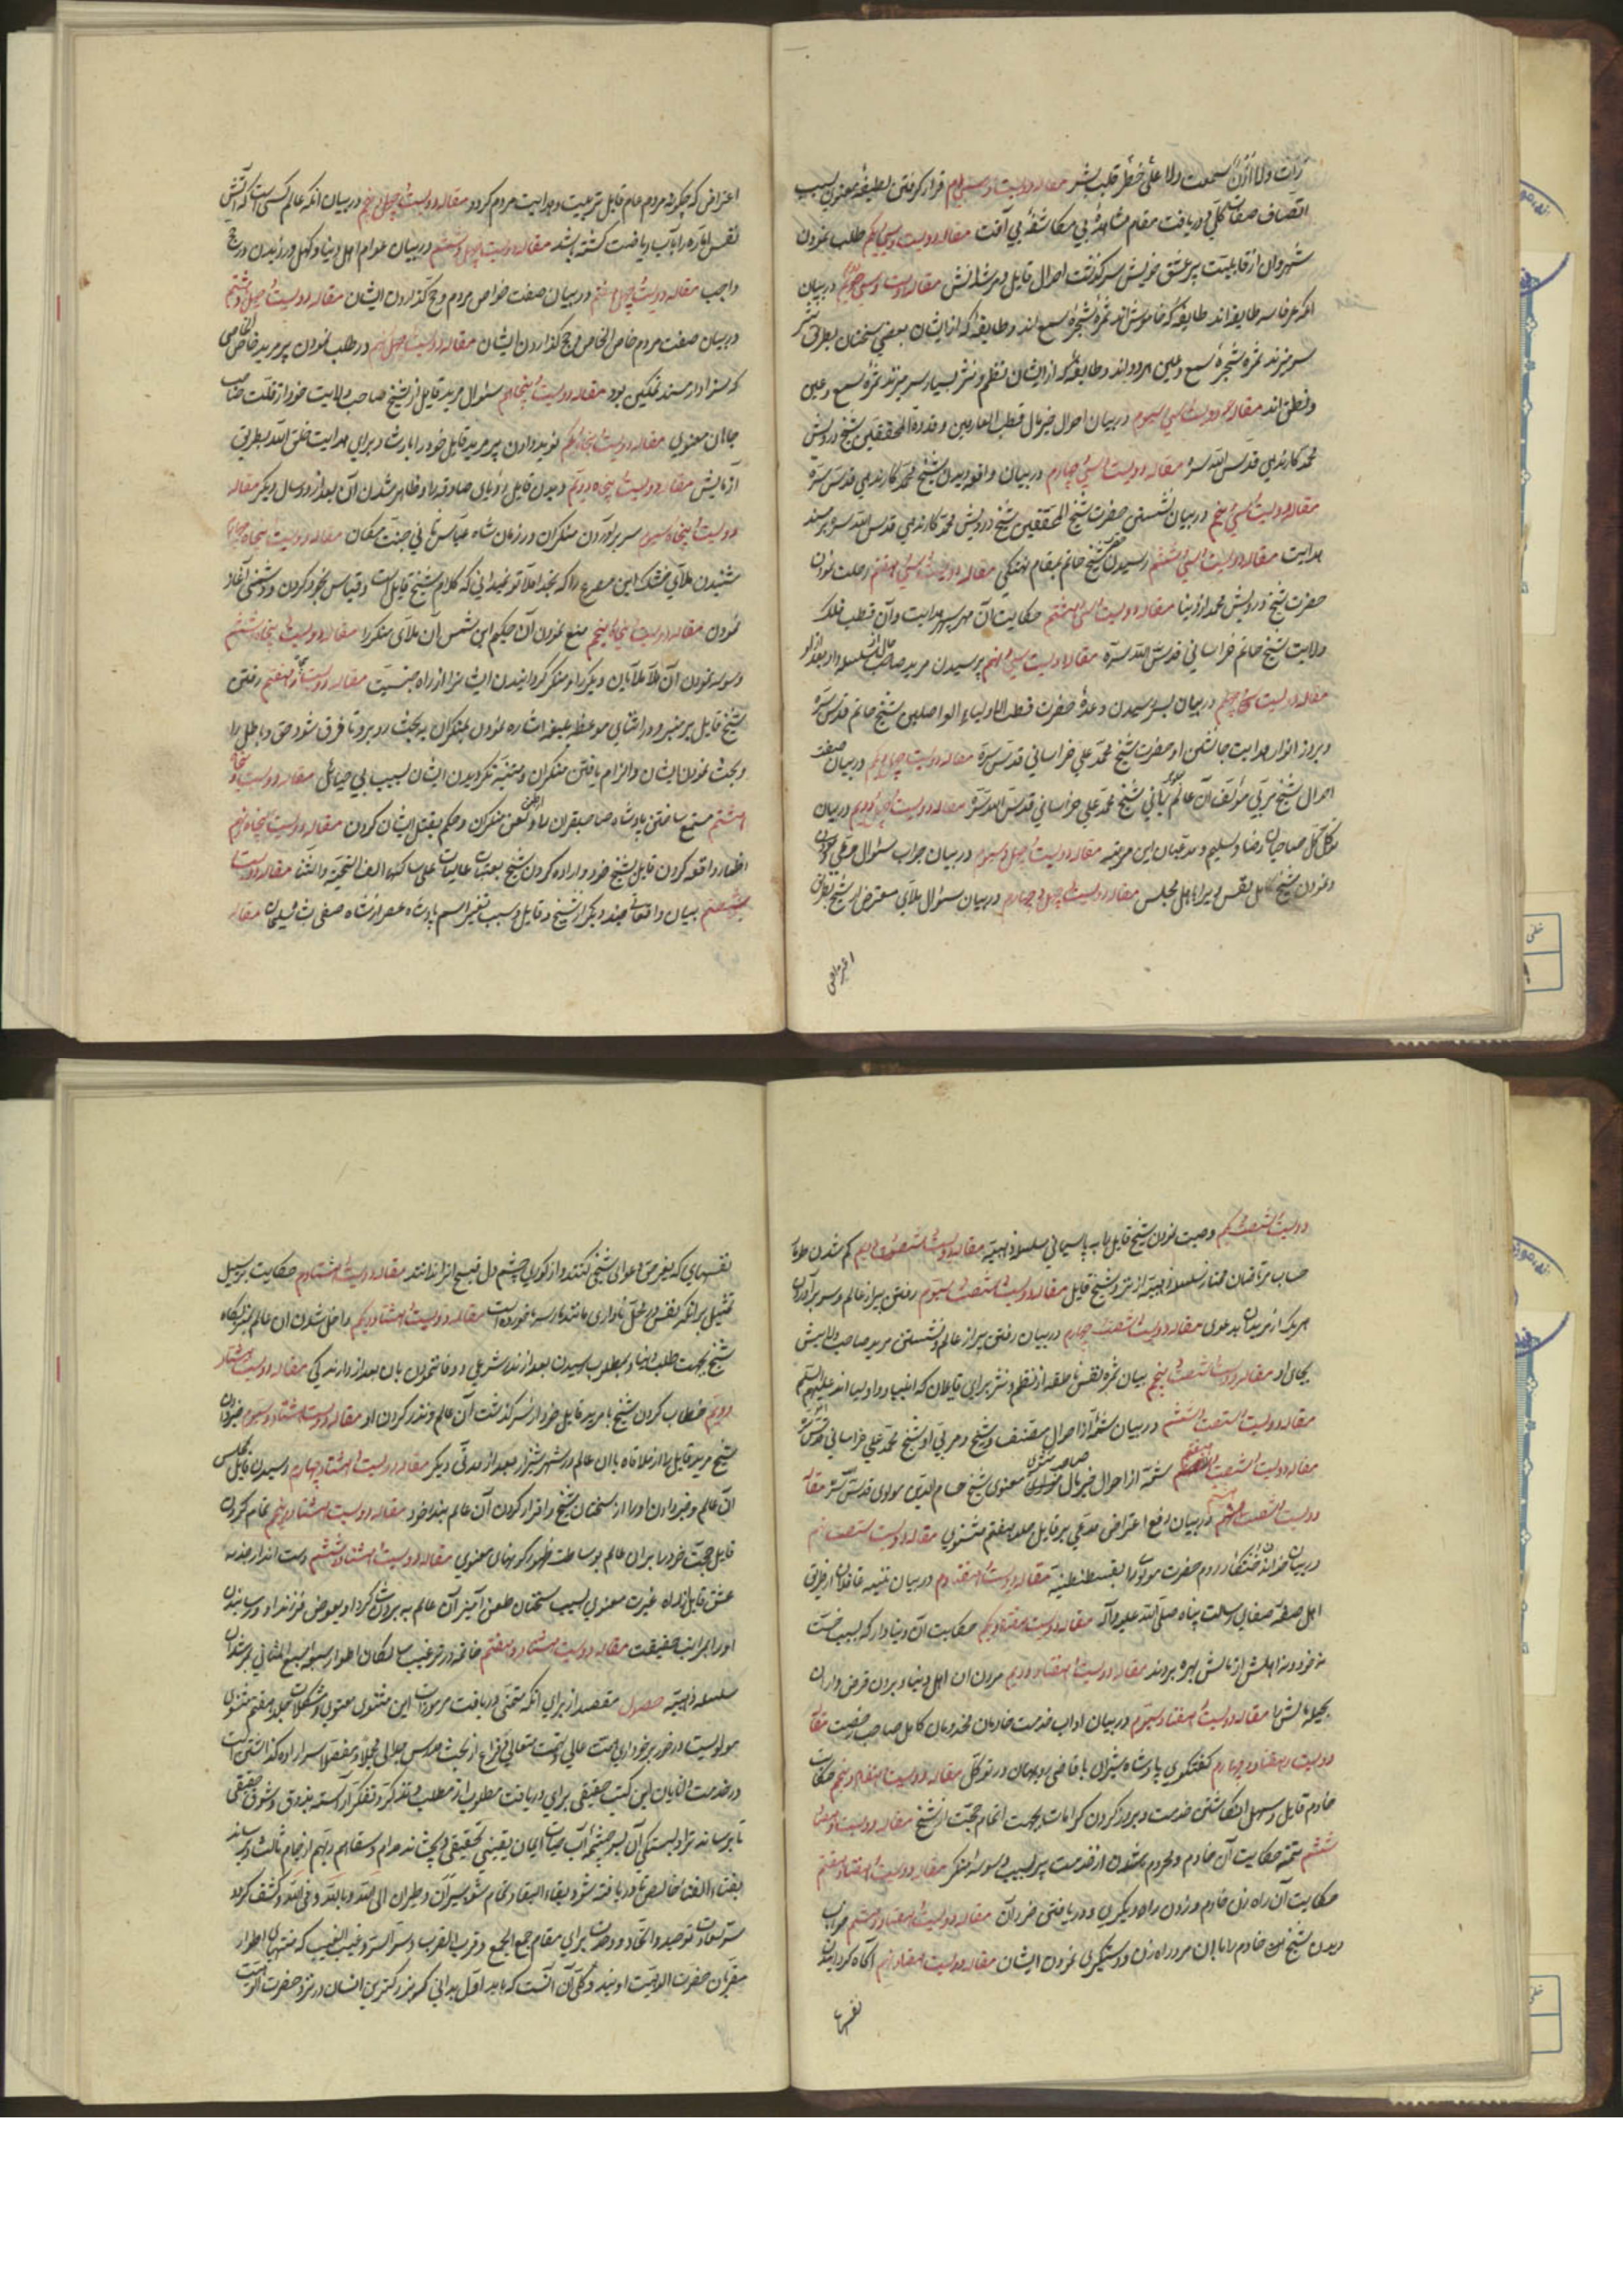 رأت ولا اذن سمعت ولا علی خطر قلب بشر مقاله دویست و سی‌ام قرار گرفتن لطیفهٔ معنوی بسبب
اتصاف صفات کلّی و دریافت مقام مشاهدهٔ بی مکاشفهٔ بی آفت مقاله دویست و سی و یکم طلب نمودن
از قابلیت پیر عشق خویش سرگذشت احوال قابل و مرشدانش مقاله دویست و سی و دویم در بیان
آنکه عرفا سه طایفه‌اند طایفهٔ که خاموش‌اند ثمرهٔ شجرهٔ سمع‌اند و طایفهٔ که از ایشان بعضی سخنان بطریق نثر
سر میزند ثمره شجرهٔ سمع و عین هر دو اند و طایفهٔ که از ایشان نظم و نثر بسیار سر میزند ثمرهٔ سمع و عین
و نطق اند مقاله دویست و سی و سیوم در بیان احوال خیر مآل قطب العارفین و قدوة المحققین شیخ درویش
محمد کارندهی قدس الله سره مقاله دویست و سی و چهارم در بیان واقعه دیدن شیخ محمد کارندهی قدس سره
مقاله دویست و سی و پنجم در بیان نشستن حضرت شیخ المحققین شیخ درویش محمد کارندهی قدس الله سره بر مسند
هدایت مقاله دویست و سی و ششم رسیدن حضرت شیخ حاتم بمقام نهنگی مقاله دویست و سی و هفتم رحلت نمودن
حضرت شیخ درویش محمد از دنیا مقاله دویست و سی و هشتم حکایت آن مهر سپهر هدایت و آن قطب فلک
ولایت شیخ حاتم خراسانی قدس الله سره مقاله دویست و سی و نهم پرسیدن مرید صاحب حال
مقاله دویست و چهلم در بیان بسر رسیدن وعدهٔ حضرت قطب الاولیاء الواصلین شیخ حاتم قدس سره
و بروز انوار هدایت جانشین او حضرت شیخ محمد علی خراسانی قدس سره مقاله دویست و چهل و یکم در بیان صفت
احوال شیخ مربّی مؤلف آن عالم ربانی شیخ محمد علی خراسانی قدس الله سره مقاله دویست و چهل و دویم در بیان
توکل صاحبان رضا و تسلیم و مدعیان این مرتبه مقاله دویست و چهل و سیوم در بیان جواب سئوال
و نمودن شیخ کامل نقس ویرا باهل مجلس مقاله دویست و چهل و چهارم در بیان سئوال ملای معترض از شیخ
اعتراض
اعتراض که چگونه مردم عام قابل تربیت و هدایت مردم گردد مقاله دویست و چهل و پنجم در بیان آنکه عالم کسی است که آتش
نفس اماره را بآب ریاضت کشته باشد مقاله دویست و چهل و ششم در بیان عوام اهل دنیا و کهل ورزیدن در حج
واجب مقاله دویست و چهل و هفتم در بیان صفت خواص مردم و حج گذاردن ایشان مقاله دویست و چهل و هشتم
در بیان صفت مردم خاص الخاص و حج گذاردن ایشان مقاله دویست و چهل و نهم در طلب نمودن پیر مرید خاص الخاصی
که سزاوار مسند تمکین بود مقاله دویست و پنجاهم سئوال مرید قابل از شیخ صاحب ولایت خود از قلت
معنوی مقاله دویست و پنجاه و یکم نوید دادن پیر مرید قابل خود را بارشاد برای هدایت خلق الله بطریق
آزمایش مقاله دویست و پنجاه و دویم دیدن قابل رؤیای صادقه را و ظاهر شدن آن بعد از دو سال دیگر مقاله
دویست و پنجاه و سیوم سر برآوردن منکران در زمان شاه عباس ثانی جنت مکان مقاله دویست و پنجاه و چهارم
شنیدن ملای خشک این مصرع را که بخدا ملا تو نمیدانی که کلام شیخ قابل است و قیاس بخود کردن و دشمنی آغاز
نمودن مقاله دویست و پنجاه و پنجم منع نمودن آن حکیم ابن شمس آن ملای منکر را مقاله دویست و پنجاه و ششم
وسوسه نمودن آن ملا ملایان دیگر را و منکر گردانیدن ایشانرا از راه جنسیت مقاله دویست و پنجاه و هفتم رفتن
شیخ قابل بر منبر و در اثنای موعظهٔ بلیغه اشاره نمودن بمنکران به بحث روبرو تا فرق شود حق و باطل را
و بحث نمودن ایشان و الزام یافتن منکران و متنبه نگردیدن ایشان بسبب بی حیائی مقاله دویست و پنجاه و
هشتم مستمع ساختن پادشاه صاحبقران را و منکران و حکم بقتل ایشان کردن مقاله دویست و پنجاه و نهم
اظهار واقعه کردن قابل بشیخ خود و اراده کردن شیخ بعتبات عالیات علی ساکنها الف التحیة و الثنا مقاله دویست و
شصتم بیان واقعات چند دیگر از شیخ و قابل و سبب تغییر اسم پادشاه عصر از شاه صفی بشاه سلیمان مقاله
دویست و شصت و یکم وصیت نمودن شیخ قابل را بپاسبانی سلسلهٔ ذهبیه مقاله دویست و شصت و دویم گم شدن طومار
حساب مرتاضان ممتاز سلسلهٔ ذهبیه از نزد شیخ قابل مقاله دویست و شصت و سیوم رفتن پیر از عالم و سر برآوردن
هر یک از مریدان بدعوی مقاله دویست و شصت و چهارم در بیان رفتن پیر از عالم و نشستن مرید صاحب ولایتش
بجای او مقاله دویست و شصت و پنجم بیان ثمره نفس ناطقه از نظم و نثر برای قابلان که انبیا و اولیا اند علیهم السلم
مقاله دویست و شصت و ششم در بیان شمهٔ از احوال مصنف و شیخ و مربّی او شیخ محمد علی خراسانی قدس سره
مقاله دویست و شصت و هفتم شمهٔ از احوال خیر مآل صاحب مثنوی معنوی شیخ حسام الدین مولوی قدس سره مقاله
دویست و شصت و هشتم در بیان رفع اعتراض مدعی بر قابل جلد هفتم مثنوی مقاله دویست و شصت و نهم
در بیان خواندن خنکار روم حضرت مولانا را بقسطنطنیه مقاله دویست و هفتادم در بیان تنبیه غافلان از طریق
اهل صفهٔ صفای رسالت پناه صلی الله علیه و آله مقاله دویست و هفتاد و یکم حکایت آن دنیادار که بسبب خست
نه خود و نه اهلش از مالش بهره بردند مقاله دویست و هفتاد و دویم مردن آن اهل دنیا و بردن قرض داران
بحیله مالش را مقاله دویست و هفتاد و سیوم در بیان آداب خدمت خادمان مخدومان کامل صاحب رخصت مقاله
دویست و هفتاد و چهارم گفتگوی پادشاه شیراز با قاضی روبهان در توکل مقاله دویست و هفتاد و پنجم حکایت
خادم قابل و سهل انگاشتن خدمت و بروز کردن کرامات بجهت اتمام حجت از شیخ مقاله دویست و هفتاد و
ششم تتمهٔ حکایت آن خادم و محروم شدن از خدمت پیر بسبب وسوسهٔ منکر مقاله دویست و هفتاد و هفتم
حکایت آن راه زن خادم و زدن راه دیگری و دریافتن ضرر آن مقاله دویست و هفتاد و هشتم
دیدن شیخ خادم را با آن مرد راه زن و دستگیری نمودن ایشان مقاله دویست و هفتاد و نهم آگاه گردانیدن
نفسهای
نفسهای که بغرض دعوای شیخی کنند و از کوری چشم دل قبیح از ندانند مقاله دویست و هشتادم حکایت بر سبیل
تمثیل برآنکه نفس مانند مار سرماخورده است مقاله دویست و هشتاد و یکم داخل شدن آن عالم بمنزلگاه
شیخ بجهت طلب دنیا و بمطلوب رسیدن بعد از ندر شرعی و وفا ننمودن بآن بعد از دارندگی مقاله دویست و هشتاد و
دویم خطاب کردن شیخ با مرید قابل خود از سرگذشت آن عالم و نذر کردن او مقاله دویست و هشتاد و سیوم خبر دادن
شیخ مرید قابل را از ملاقات با آن عالم در شهر شیراز بعد از مدتی دیگر مقاله دویست و هشتاد و چهارم رسیدن قابل بمجلس
آن عالم و خبر دادن او را از سخنان شیخ و اقرار کردن آن عالم بنذر خود مقاله دویست و هشتاد و پنجم تمام کردن
قابل حجت خود را بر آن عالم بوساطت ظهور گوهرهای معنوی مقاله دویست و هشتاد و ششم دست انداز جذبه
عشق قابل از راه غیرت معنوی بسبب سخنان طعن آمیز آن عالم به برون شاگرد او بعوض فرزند او و رسانیدن
او را بمراتب حقیقت مقاله دویست و هشتاد و هفتم خاتمه در ترغیب سالکان اطوار سبعهٔ سبع المثانی
سلسله ذهبیه حصول مقصد از برای آنکه مستحق دریافت مرموزات این مثنوی معنوی و مشکلات جلد هفتم مثنوی
مولویست در خور برخورداری همت عالی و نهمت متعالی فراغ از بحث و درس و جدال مجلا و مفصلا سر اراده گذاشتن است
در خدمت دانایان این کتب حقیقی برای دریافت مطلوب از مطلب و تذکر و تفکر آراسته بذوق و شوق حقیقی
تا برساند ترا و لب تشنگی آن بسرچشمهٔ آب حیات ایمان یقینی تحقیقی و بچشاند مرام و سقاهم ربهم از جام ثالث و برساند
بفناء الفناء خالص تا دریافته شود ببقاء البقاء و تمام شود سیران و طیران الی الله و بالله و فی الله و کشف گردد
سر توحید و اتحاد و وحدت برای مقام جمع الجمع و قرب القرب و سر السر و غیب الغیب که منتهای اطوار
مقربان حضرت الوهیت اویند و کلّ آن آنست که باید اقل بدانی که رمز کمترین انسان در نزد حضرت الوهیت